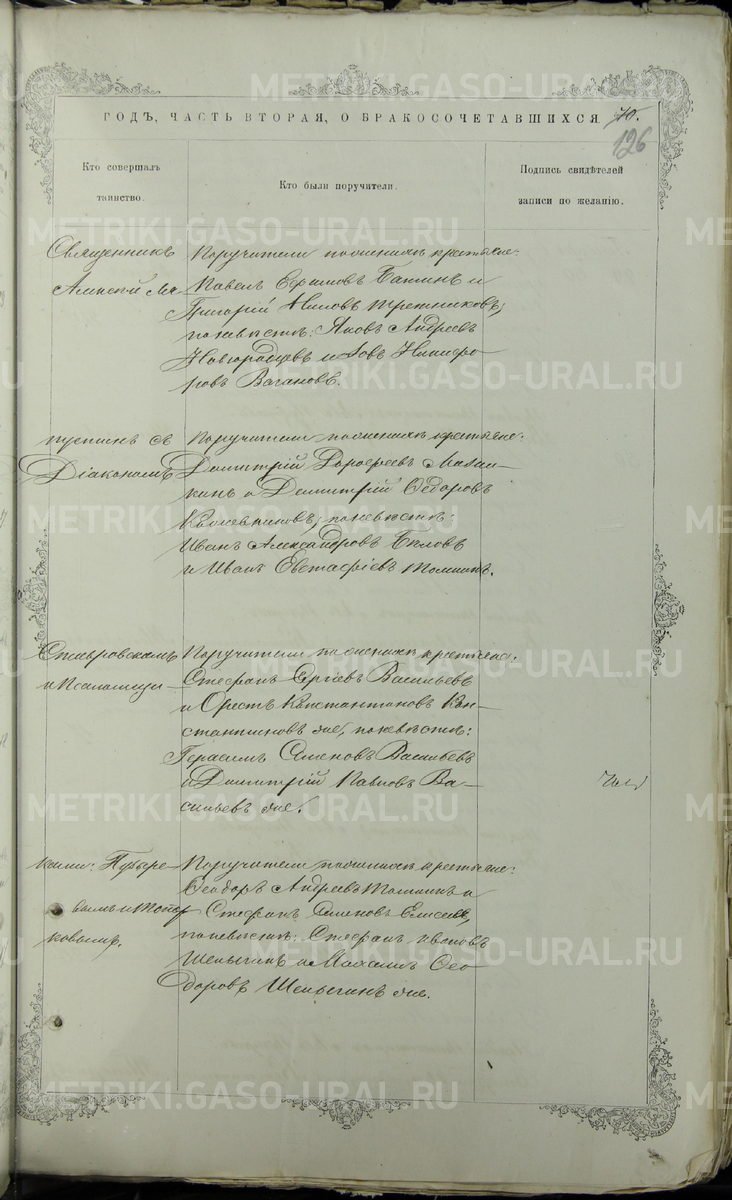 ГОДЪ, ЧАСТЬ ВТОРАЯ, О БРАКОСОЧЕТАВШИХСЯ
126
Кто совершалъ таинство.
Кто были поручители.
Подпись свидѣтелей записи по желанію.
Священникъ
Алексѣй Ма-
Поручители по женихѣ крестьяне:
Павелъ Ефимовъ и
Григорій Ниловъ Третниковъ;
по невѣстѣ: Яковъ Андреевъ
Новгородцевъ и Іовъ Никифо-
ровъ Вагановъ.
съ
Діакономъ
Поручители по женихѣ крестьяне:
Димитрій Дорофеевъ
и Димитрій Ѳедоровъ
по невѣстѣ:
Иванъ Александровъ Бѣловъ
и Иванъ Евстафіевъ Томкинъ.
Ставровскимъ
и Псаломщи-
Поручители по женихѣ крестьяне:
Стефанъ Сергіевъ Васильевъ
и Орестъ Константиновъ Кон-
стантиновъ же, по невѣстѣ:
Герасимъ Семеновъ Васильевъ
и Димитрій Павловъ Ва-
сильевъ же.
ками: Пузыре-
вымъ и Топор
ковымъ.
Поручители по женихѣ крестьяне:
Ѳеодоръ Андреевъ Томкинъ и
Стефанъ Семеновъ Елисеевъ,
по невѣстѣ: Стефанъ Ивановъ
Шепыгинъ и Михаилъ Ѳео-
доровъ Шепыгинъ же.
METRIKI.GASO-URAL.RU